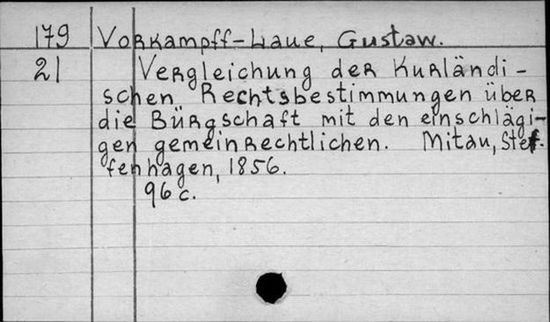 179 Vorkampff-Laue, Gustaw.
21 Vergleichung der Kurländi-
schen Rechtsbestimmungen über
die Bürgschaft mit den einschlägi-
gen gemeinrechtlichen. Mitau, Stef-
fenhagen, 1856.
96 c.